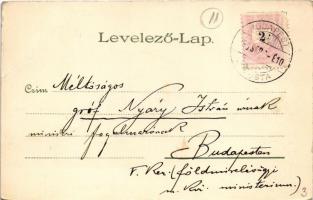 11
Levelező-Lap.
2
Czim Méltóságos
gróf Nyáry István úrnak
ministeri fogalmazónak
Budapesten
F. kir. (földmívelésügyi
m. kir. ministerium)
3